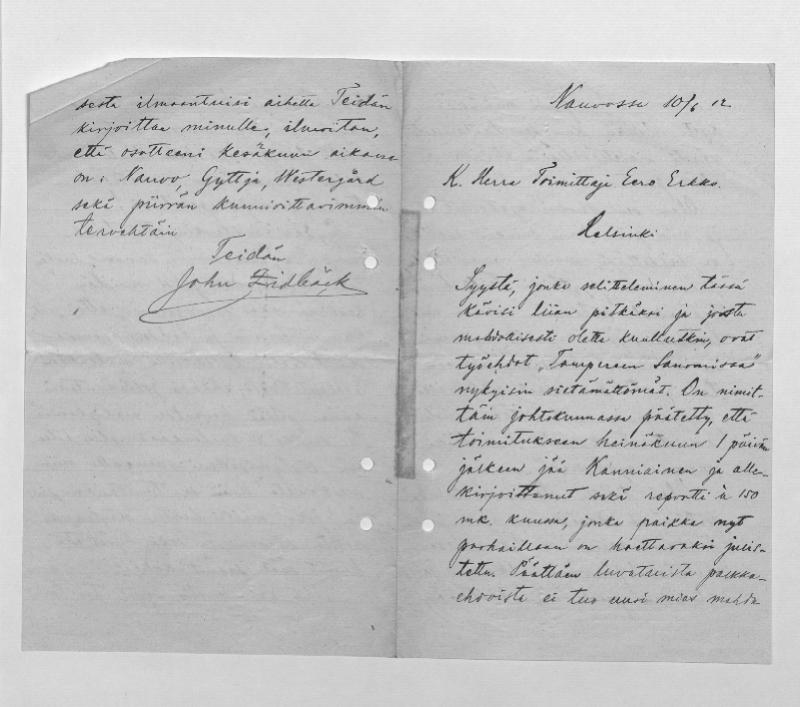 sesta ilmaantuisi aihetta Teidän
kirjoittaa minulle, ilmoitan,
että osotteeni kesäkuun aikana
on: Nauvo, Gyttja, Westergård
sekä piirrän kunnioittavimmin
tervehtäin
Teidän
John Zidbäck
Nauvossa 10/6 12
K. Herra Toimittaja Eero Erkko.
Helsinki
Syystä, jonka selitteleminen tässä
kävisi liian pitkäksi ja joista
mahdollisesti olette kuullutkin, ovat
työehdot „Tampereen Sanomissa"
nykyisin sietämättömät. On nimit-
täin johtokunnassa päätetty, että
toimitukseen heinäkuun 1 päivän
jälkeen jää Kanniainen ja alle-
kirjoittanut sekä reportti à 150
mk. kuussa, jonka paikka nyt
parhaillaan on haettavaksi julis-
tettu. Päättäen luvatuista palkka-
ehdoista ei tuo uusi mies mahda